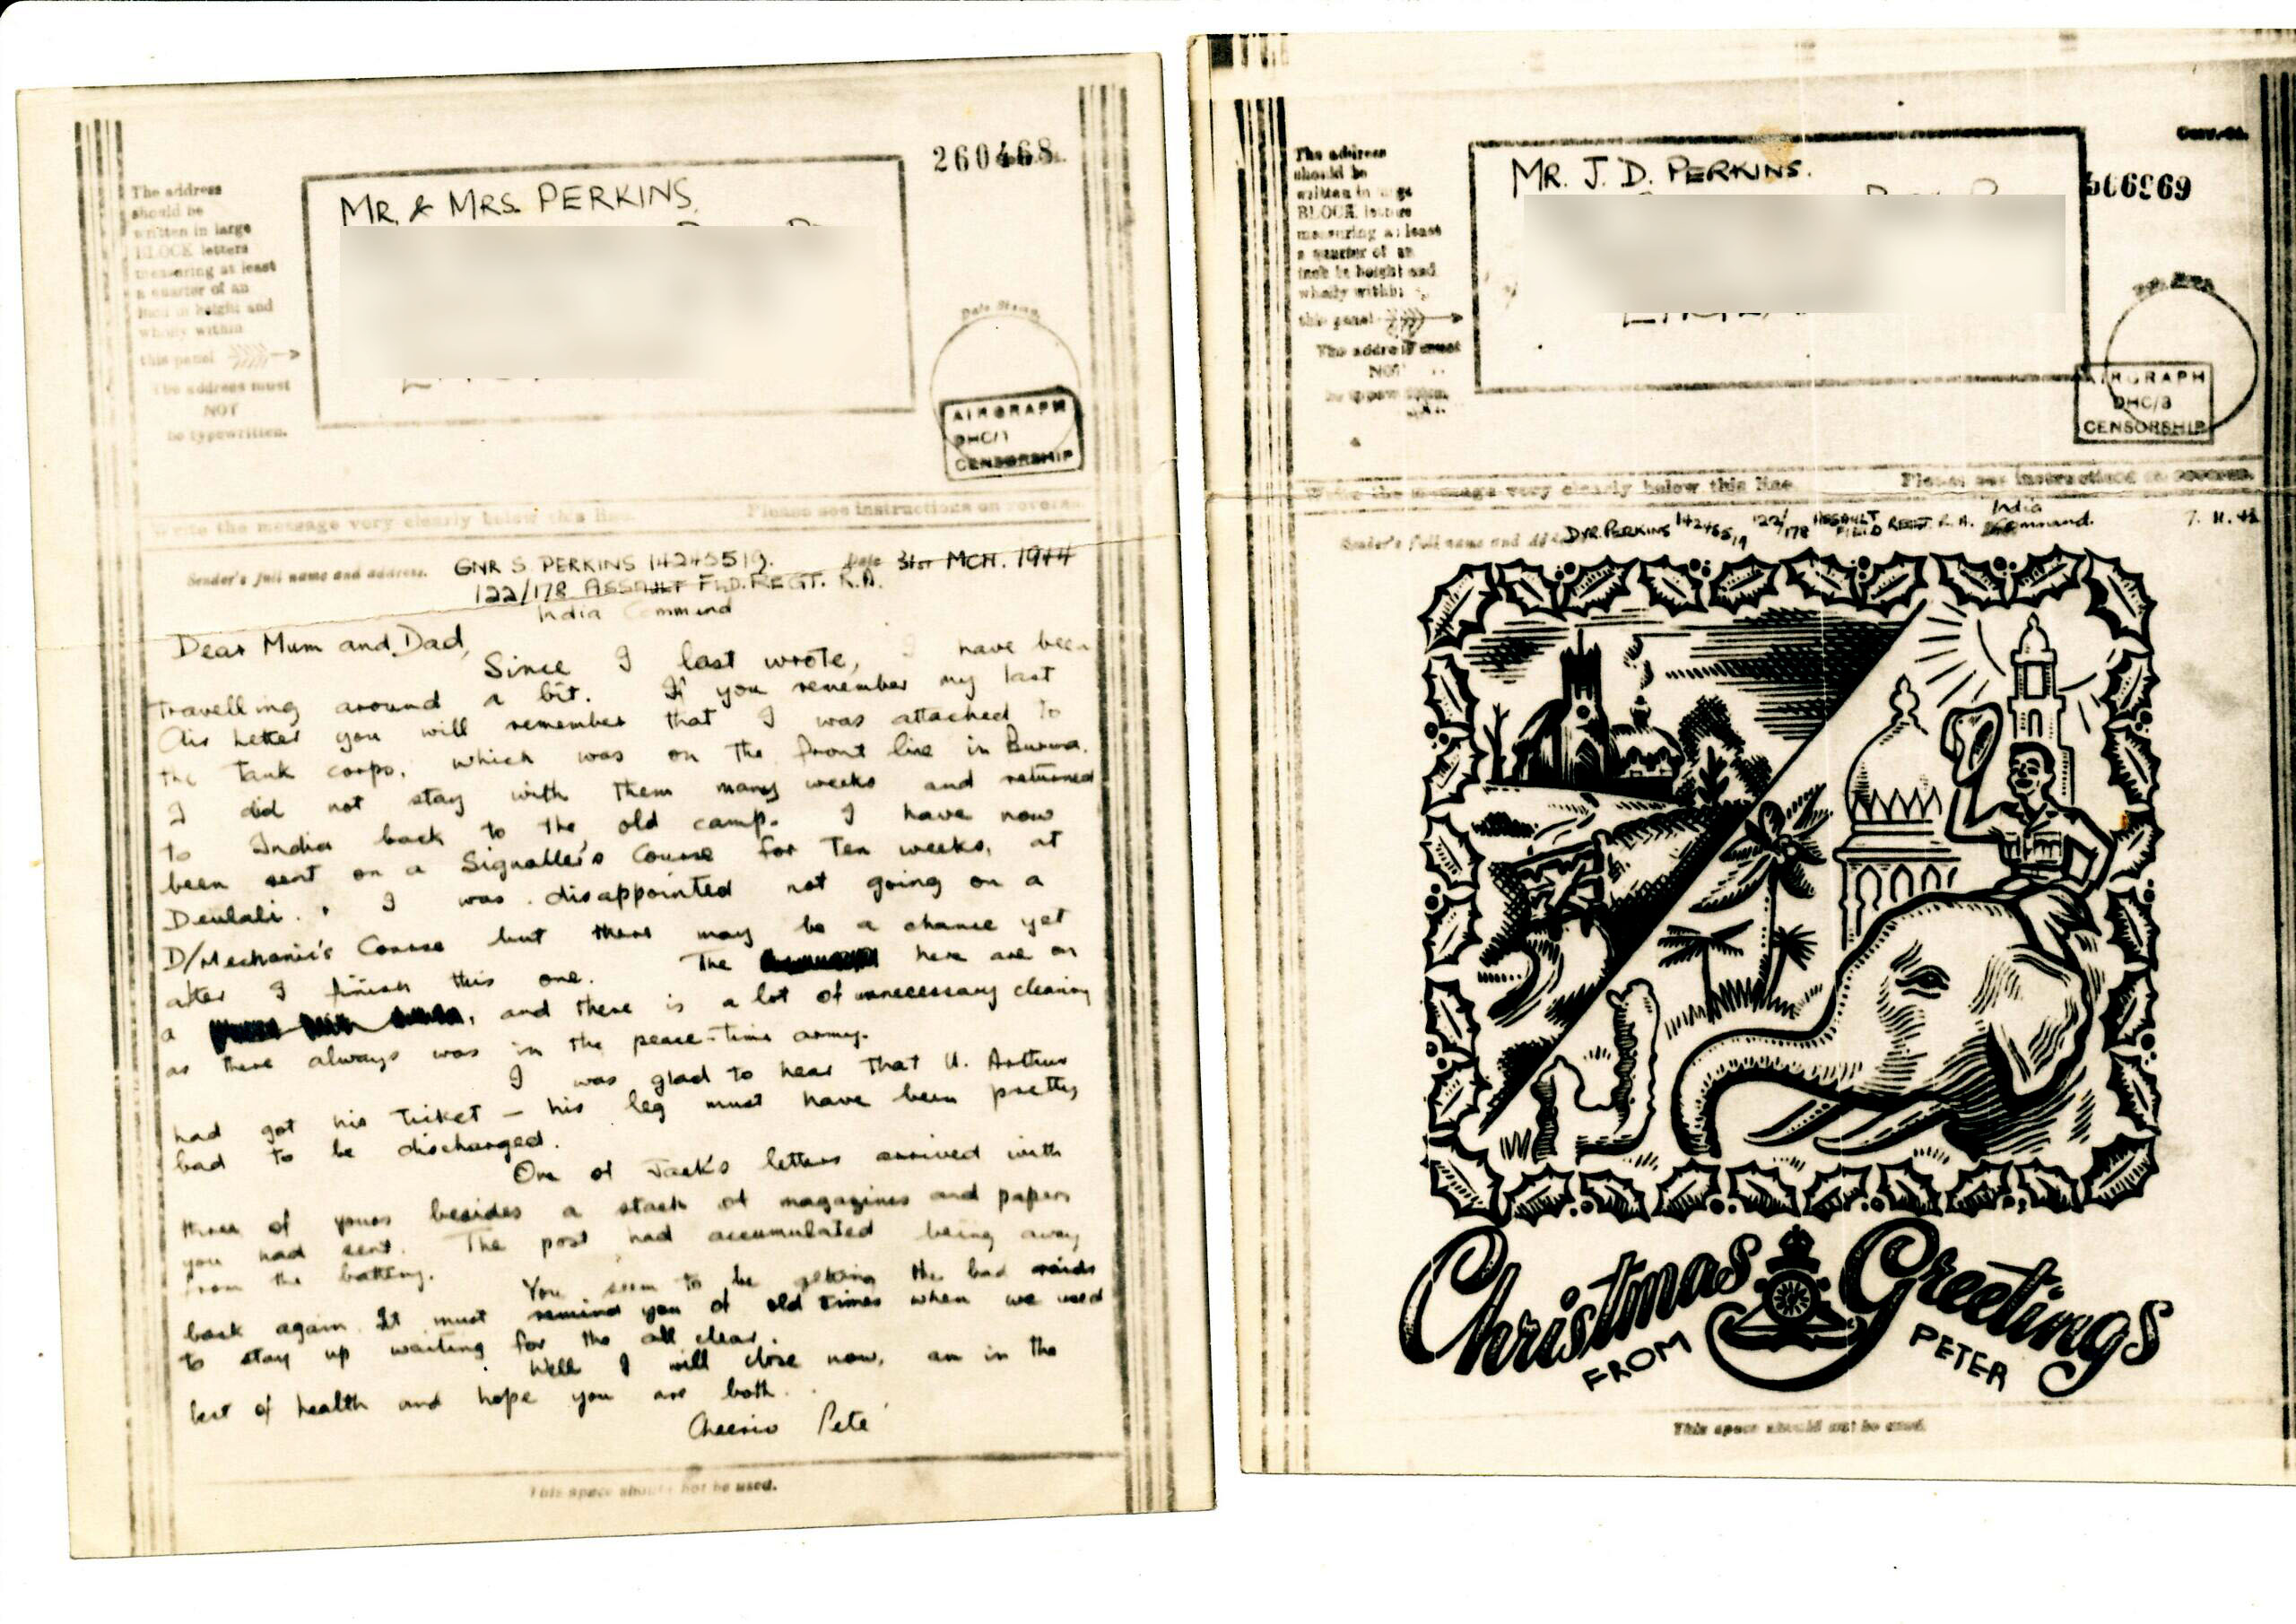 260468
The address
should be
written in large
BLOCK letters
measuring at least
a quarter of an
inch in height and
wholly within
this panel
The address must
NOT
be typewritten.
MR. & MRS. PERKINS.
Date Stamp
AIRGRAPH
DHC/1
CENSORSHIP
Write the message very clearly below this line.
Please see instructions on reverse.
Sender's full name and address.
GNR S. PERKINS 14245519.
Date 31ST MCH. 1944
122/178 ASSAULT FLD. REGT. R.A.
India Command
Dear Mum and Dad,
Since I last wrote, I have been
travelling around a bit. If you remember my last
Air Letter you will remember that I was attached to
the Tank corps, which was on the front line in Burma.
I did not stay with them many weeks and returned
to India back to the old camp. I have now
been sent on a Signaller's Course for Ten weeks, at
Deulali. I was disappointed not going on a
D/Mechanic's Course but there may be a chance yet
after I finish this one. The here are on
a , and there is a lot of unnecessary cleaning
as there always was in the peace-time army.
I was glad to hear that U. Arthur
had got his Ticket - his leg must have been pretty
bad to be discharged.
One of Jack's letters arrived with
three of yours besides a stack of magazines and papers
you had sent. The post had accumulated being away
from the battery.
You seem to be getting the bad raids
back again. It must remind you of old times when we used
to stay up waiting for the all clear.
Well I will close now, am in the
best of health and hope you are both.
Cheerio Pete
This space should not be used.
The address
should be
written in large
BLOCK letters
measuring at least
a quarter of an
inch in height and
wholly within
this panel
The address must
NOT
MR. J. D. PERKINS.
AIRGRAPH
DHC/3
CENSORSHIP
Write the message very clearly below this line.
Please see instructions on reverse.
Sender's full name and
DVR. PERKINS 122/178 ASSAULT FIELD REGT. R.A. India Command.
Christmas Greetings
FROM PETER
This space should not be used.